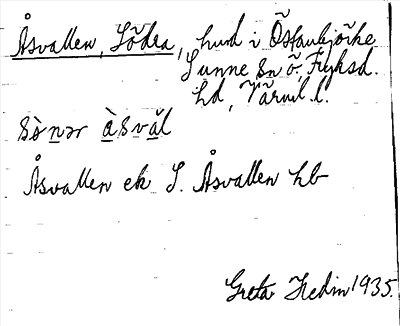 Åsvallen, Södra, hmd i Östanbjörke
Sunne sn ö, Fryksd.
hd, Värml. l.
sònər àsvàl
Åsvallen ek S. Åsvallen hb
Greta Hedin 1935.